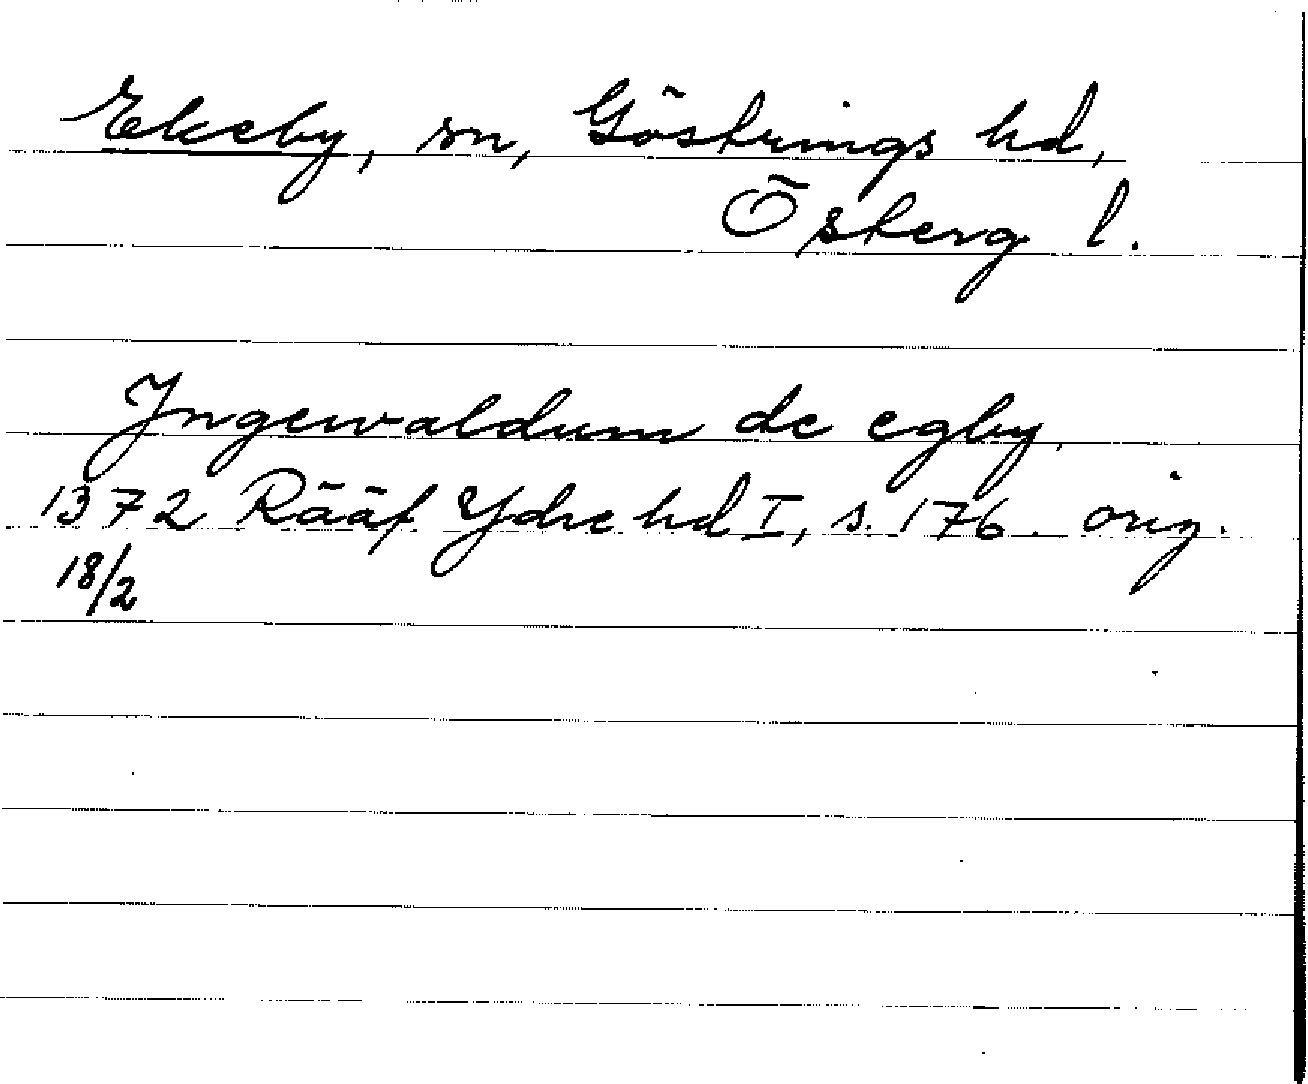 Ekeby, sn, Göstrings hd,
Östergl.
Jngewaldum de egby,
1372 Rääf Ydre hd I, s. 176. orig.
18/2